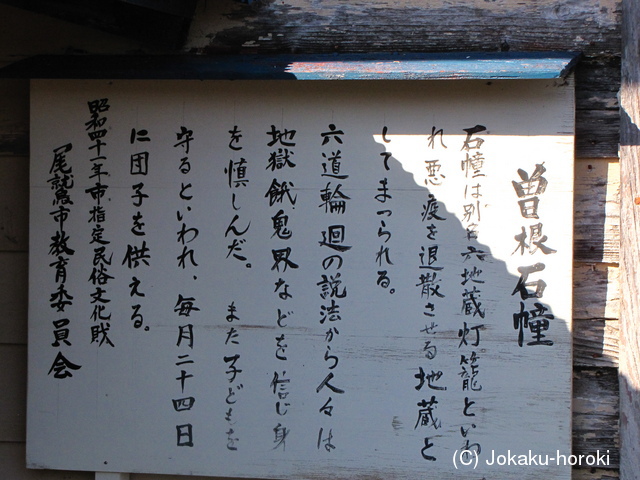 曽根石幢
石幢は別名六地蔵灯籠といわ
れ悪疫を退散させる地蔵と
してまつられる。
六道輪廻の説法から人々は
地獄餓鬼界などを信じ身
を慎しんだ。また子どもを
守るといわれ、毎月二十四日
に団子を供える。
昭和四十一年市指定民俗文化財
尾鷲市教育委員会
(C) Jokaku-horoki